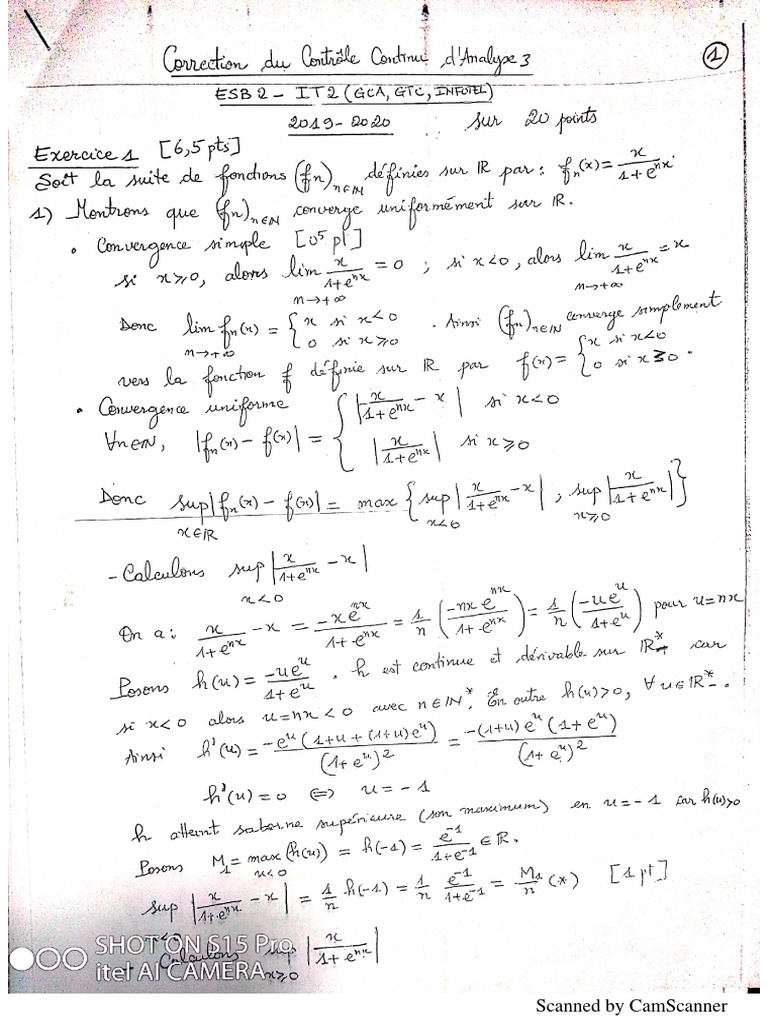 Correction du Contrôle Continu d'Analyse 3
1
ESB2 - IT2 (GCA, GTC, INFOTEL)
2019-2020 sur 20 points
Exercice 1 [6,5 pts]
Soit la suite de fonctions (fn)n∈IN définies sur IR par : fn(x) = x/(1+e^nx).
1) Montrons que (fn)n∈IN converge uniformément sur IR.
• Convergence simple [05 pt]
si x≥0, alors lim n→+∞ x/(1+e^nx) = 0 ; si x<0, alors lim n→+∞ x/(1+e^nx) = x
Donc lim n→+∞ fn(x) = { x si x<0 0 si x≥0 . Ainsi (fn)n∈IN converge simplement
vers la fonction f définie sur IR par f(x) = { x si x<0 0 si x≥0 .
• Convergence uniforme
∀n∈IN, |fn(x) - f(x)| = { |x/(1+e^nx) - x| si x<0 |x/(1+e^nx)| si x≥0
Donc sup x∈IR |fn(x) - f(x)| = max { sup x<0 |x/(1+e^nx) - x| ; sup x≥0 |x/(1+e^nx)| }
- Calculons sup x<0 |x/(1+e^nx) - x|
On a : x/(1+e^nx) - x = -xe^nx/(1+e^nx) = 1/n (-nxe^nx/(1+e^nx)) = 1/n (-ue^u/(1+e^u)) pour u=nx
Posons h(u) = -ue^u/(1+e^u) . h est continue et dérivable sur IR*- car
si x<0 alors u=nx<0 avec n∈IN*. En outre h(u)>0, ∀u∈IR*-.
Ainsi h'(u) = -e^u(1+u+(1+u)e^u)/(1+e^u)^2 = -(1+u)e^u(1+e^u)/(1+e^u)^2
h'(u)=0 ⟺ u=-1
h atteint sa borne supérieure (son maximum) en u=-1 car h(u)>0
Posons M1 = max u<0 (h(u)) = h(-1) = e^-1/(1+e^-1) ∈ IR.
sup x<0 |x/(1+e^nx) - x| = 1/n h(-1) = 1/n e^-1/(1+e^-1) = M1/n (*) [1 pt]
Calculons sup x≥0 |x/(1+e^nx)|
SHOT ON S15 Pro
itel AI CAMERA
Scanned by CamScanner